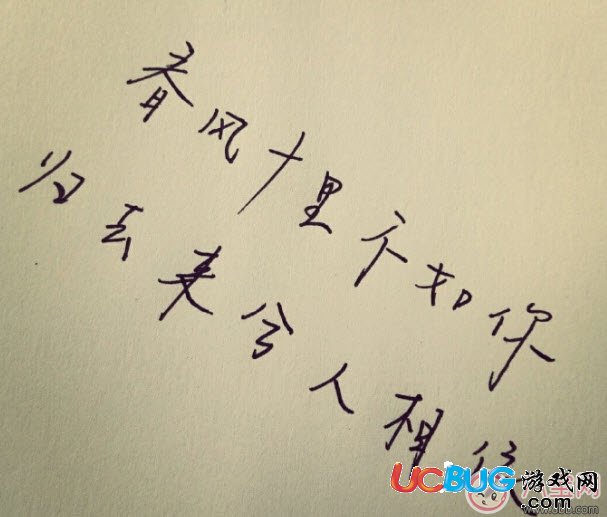 春风十里不如你
归去来兮人相依
UCBUG游戏网
.com